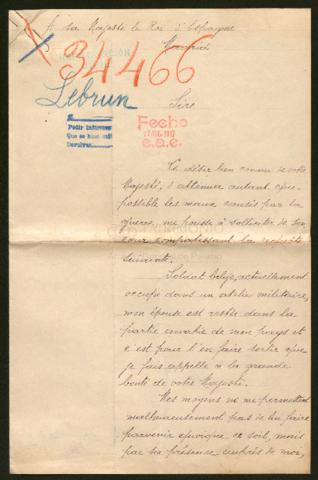 A sa Majesté le Roi d'Espagne
Madrid
34466
Lebrun
Sire
Fecho
e.a.e.
Pedir informes
Devolver
Le désir bien connu de votre
Majesté, d'atténuer autant que
possible les maux causés par la
guerre, me pousse à solliciter de son
cœur compatissant la requête
suivante.
Soldat belge, actuellement
occupé dans un atelier militaire,
mon épouse est restée dans la
partie envahie de mon pays et
c'est pour l'en faire sortir que
je fais appelle à la grande
bonté de votre Majesté.
Mes moyens ne me permettant
malheureusement pas de lui faire
parvenir quoique ce soit, mais
par sa présence auprès de moi,